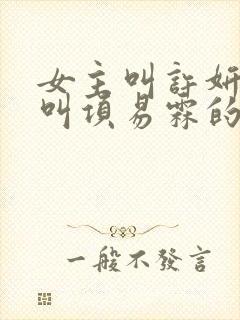 女主叫許妍
叫項易霖的
一般不發言